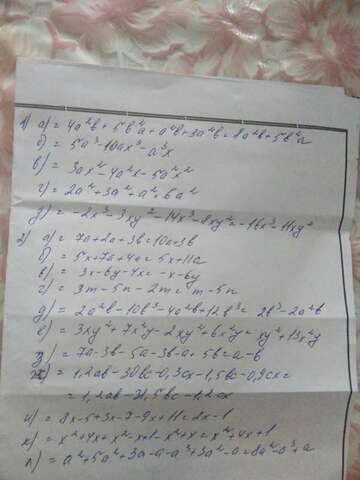 1) а) = 4a²b + 5b²a + a²b + 3a²b = 8a²b + 5b²a
б) = 5a³ - 10ax³ - a³x
в) = 3ax² - 4a²x - 5a²x²
г) = 2a² + 3a² + a² = 6a²
д) = -2x³ - 3xy² - 14x³ - 8xy² = -16x³ - 11xy²
2) а) = 7a + 2a + 3b = 10a + 3b
б) = 5x + 7a + 4a = 5x + 11a
в) = 3x - 6y - 4x = -x - 6y
г) = 3m - 5n - 2m = m - 5n
д) = 2a²b - 10b³ - 4a²b + 12b³ = 2b³ - 2a²b
е) = 3xy² + 7x²y - 2xy² + 6x²y = xy² + 13x²y
з) = 7a - 3b - 5a - 3b - a + 5b = a - b
ж) = 1,2ab - 30bc - 0,3cx - 1,5bc - 0,9cx =
= 1,2ab - 31,5bc - 1,2cx
и) = 8x - 5 + 3x - 7 - 9x + 11 = 2x - 1
к) = x² + 4x + x² - x + 1 - x² + x = x² + 4x + 1
л) = a² + 5a² + 3a - a - a³ + 3a² - a = 8a² - a³ + a